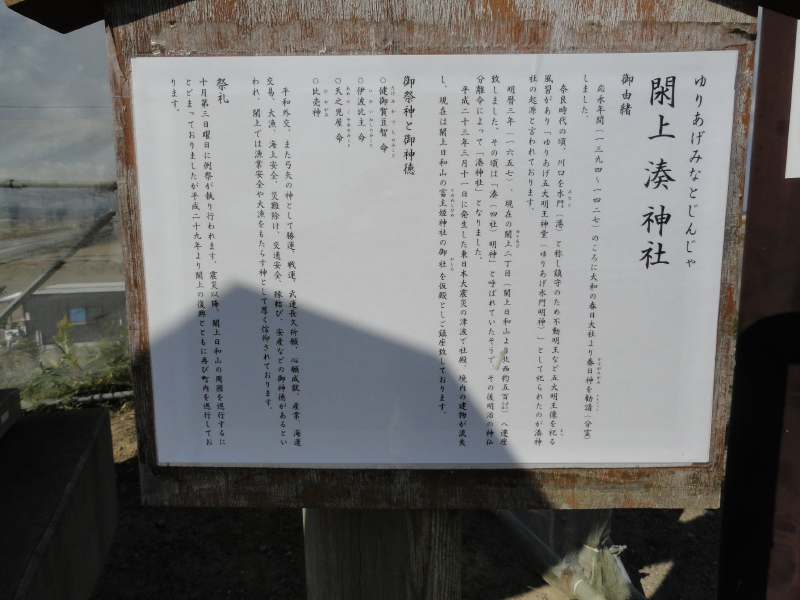 ゆりあげみなとじんじゃ
閖上湊神社
御由緒
応永年間(一三九四〜一四二七)のころに大和の春日大社より春日神を勧請(分霊)
しました。
奈良時代の頃、川口を水門(港)と称し鎮守のため不動明王など五大明王像を祀る
風習があり「ゆりあげ五大明王神堂「ゆりあげ水門明神」」として祀られたのが湊神
社の起源と言われております。
明暦三年(一六五七)、現在の閖上二丁目(閖上日和山より北西約五百㍍)へ遷座
致しました。その頃は「湊(四社)明神」と呼ばれていたそうで、その後明治の神仏
分離令によって「湊神社」となりました。
平成二十三年三月十一日に発生した東日本大震災の津波で社殿、境内の建物が流失
し、現在は閖上日和山の富主姫神社の御社を仮殿としご鎮座致しております。
御祭神と御神徳
○健御賀豆智命
○伊波比主命
○天之児屋命
○比売神
平和外交、また弓矢の神として勝運、戦運、武運長久祈願、心願成就、産業、海運
交易、大漁、海上安全、災難除け、交通安全、縁結び、安産などの御神徳があるとい
われ、閖上では漁業安全や大漁をもたらす神として厚く信仰されております。
祭礼
十月第三日曜日に例祭が執り行われます。震災以降、閖上日和山の周囲を巡行するに
とどまっておりましたが平成二十九年より閖上の復興とともに再び町内を巡行してお
ります。